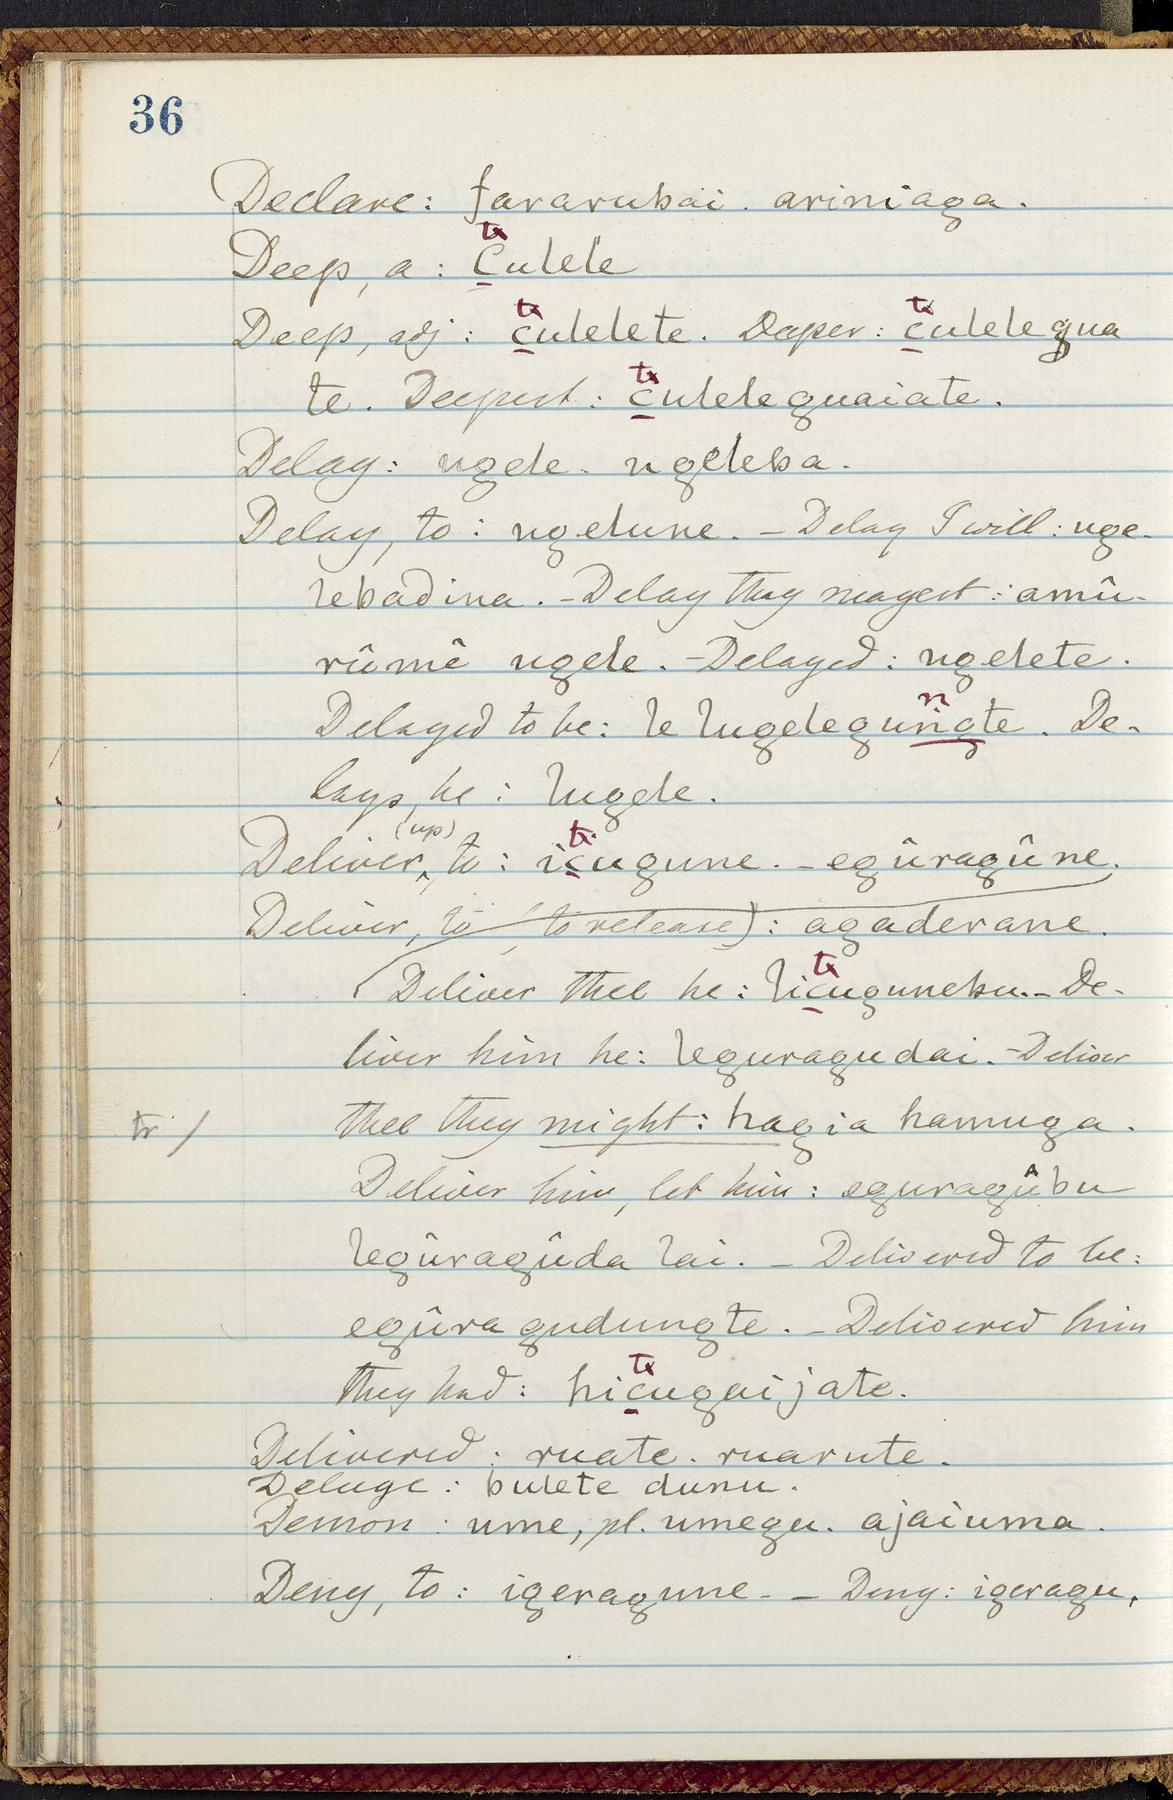 36
Declare: fararubai. ariniaga.
tx
Deep, a: culele
tx tx
Deep, adj: culelete. Deeper: culelegua
tx
te. Deepest: culeleguaiate.
Delay: ngele. ngeleba.
Delay, to: ngelune. – Delay I will: nge-
lebadina. – Delay they mayest: amû-
rûmê ngele. – Delayed: ngelete.
n
Delayed to be: le lugelegungte. De-
lays, he: lugele.
(up) tx
Deliver, to: icugune. – egûragûne.
Deliver, to (to release): agaderane.
tx
Deliver thee he: licugunebu. – De-
liver him he: leguragudai. – Deliver
tr / thee they might: hagia hamuga.
Deliver him, let him: eguragûbu
legûragûda lai. – Delivered to be:
egûragudungte. – Delivered him
tx
they had: hicuguijate.
Delivered: ruate. ruarute.
Deluge: bulete dunu.
Demon: ume, pl. umegu. ajaiuma.
Deny, to: igeragune. – Deny: igeragu,